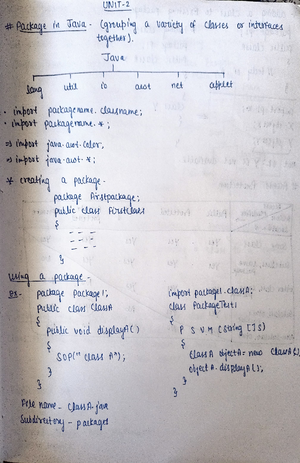 UNIT-2
# Package in Java - (grouping a variety of classes or interfaces
together).
Java
lang util io awt net applet
• import packagename. classname;
• import packagename.*;
⇒ import java.awt.color;
⇒ import java.awt.*;
* creating a package-
package firstpackage;
public class Firstclass
{
}
Using a package-
Ex- package Package1;
public class classA
{
public void displayA()
{
SOP("class A");
}
}
File name - classA.java
Subdirectory - package1
import package1.classA;
class PackageTest1
{
P S V M (String []S)
{
classA objectA = new classA();
objectA.displayA();
}
}